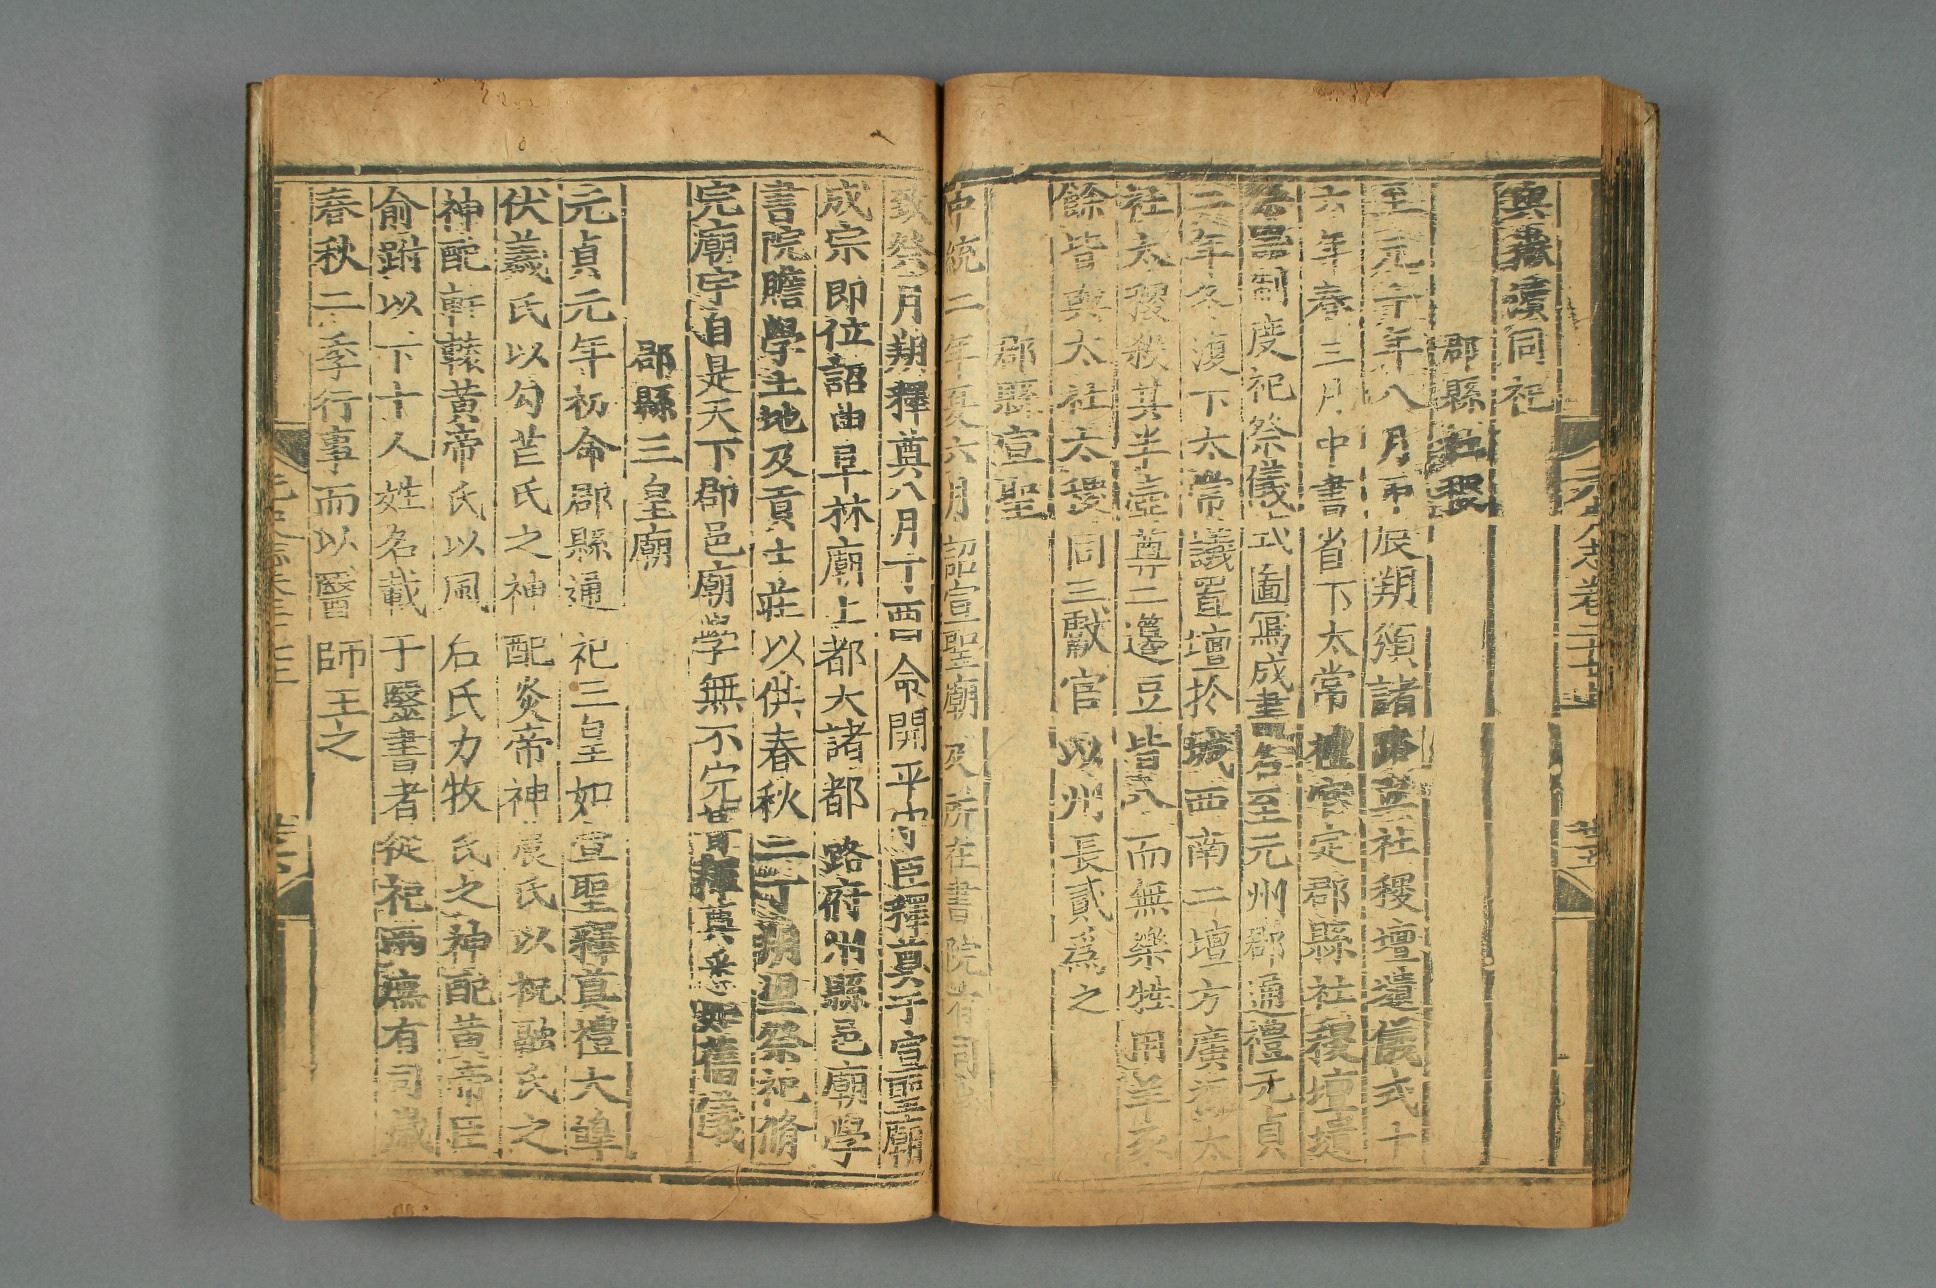 與嶽瀆同祀
郡縣社稷
至元十年八月甲辰朔頒諸路立社稷壇壝儀式十
六年春三月中書省下太常禮官定郡縣社稷壇壝
祭器制度祀祭儀式圖寫成書名至元州郡通禮元貞
二年冬復下太常議置壇於城西南二壇方廣視太
社太稷殺其半壺尊二籩豆皆八而無樂牲用羊豕
餘皆與太社太稷同三獻官以州長貳爲之
郡縣宣聖
中統二年夏六月詔宣聖廟及所在書院有司歲時
致祭月朔釋奠八月丁酉命開平守臣釋奠于宣聖廟
成宗即位詔曲阜林廟上都大諸都路府州縣邑廟學
書院贍學土地及貢士莊以供春秋二丁朔望祭祀脩
完廟宇自是天下郡邑廟學無不完葺釋奠悉如舊儀
郡縣三皇廟
元貞元年初命郡縣通祀三皇如宣聖釋奠禮太皞
伏羲氏以勾芒氏之神配炎帝神農氏以祝融氏之
神配軒轅黃帝氏以風后氏力牧氏之神配黃帝臣
俞跗以下十人姓名載于醫書者從祀兩廡有司歲
春秋二季行事而以醫師主之